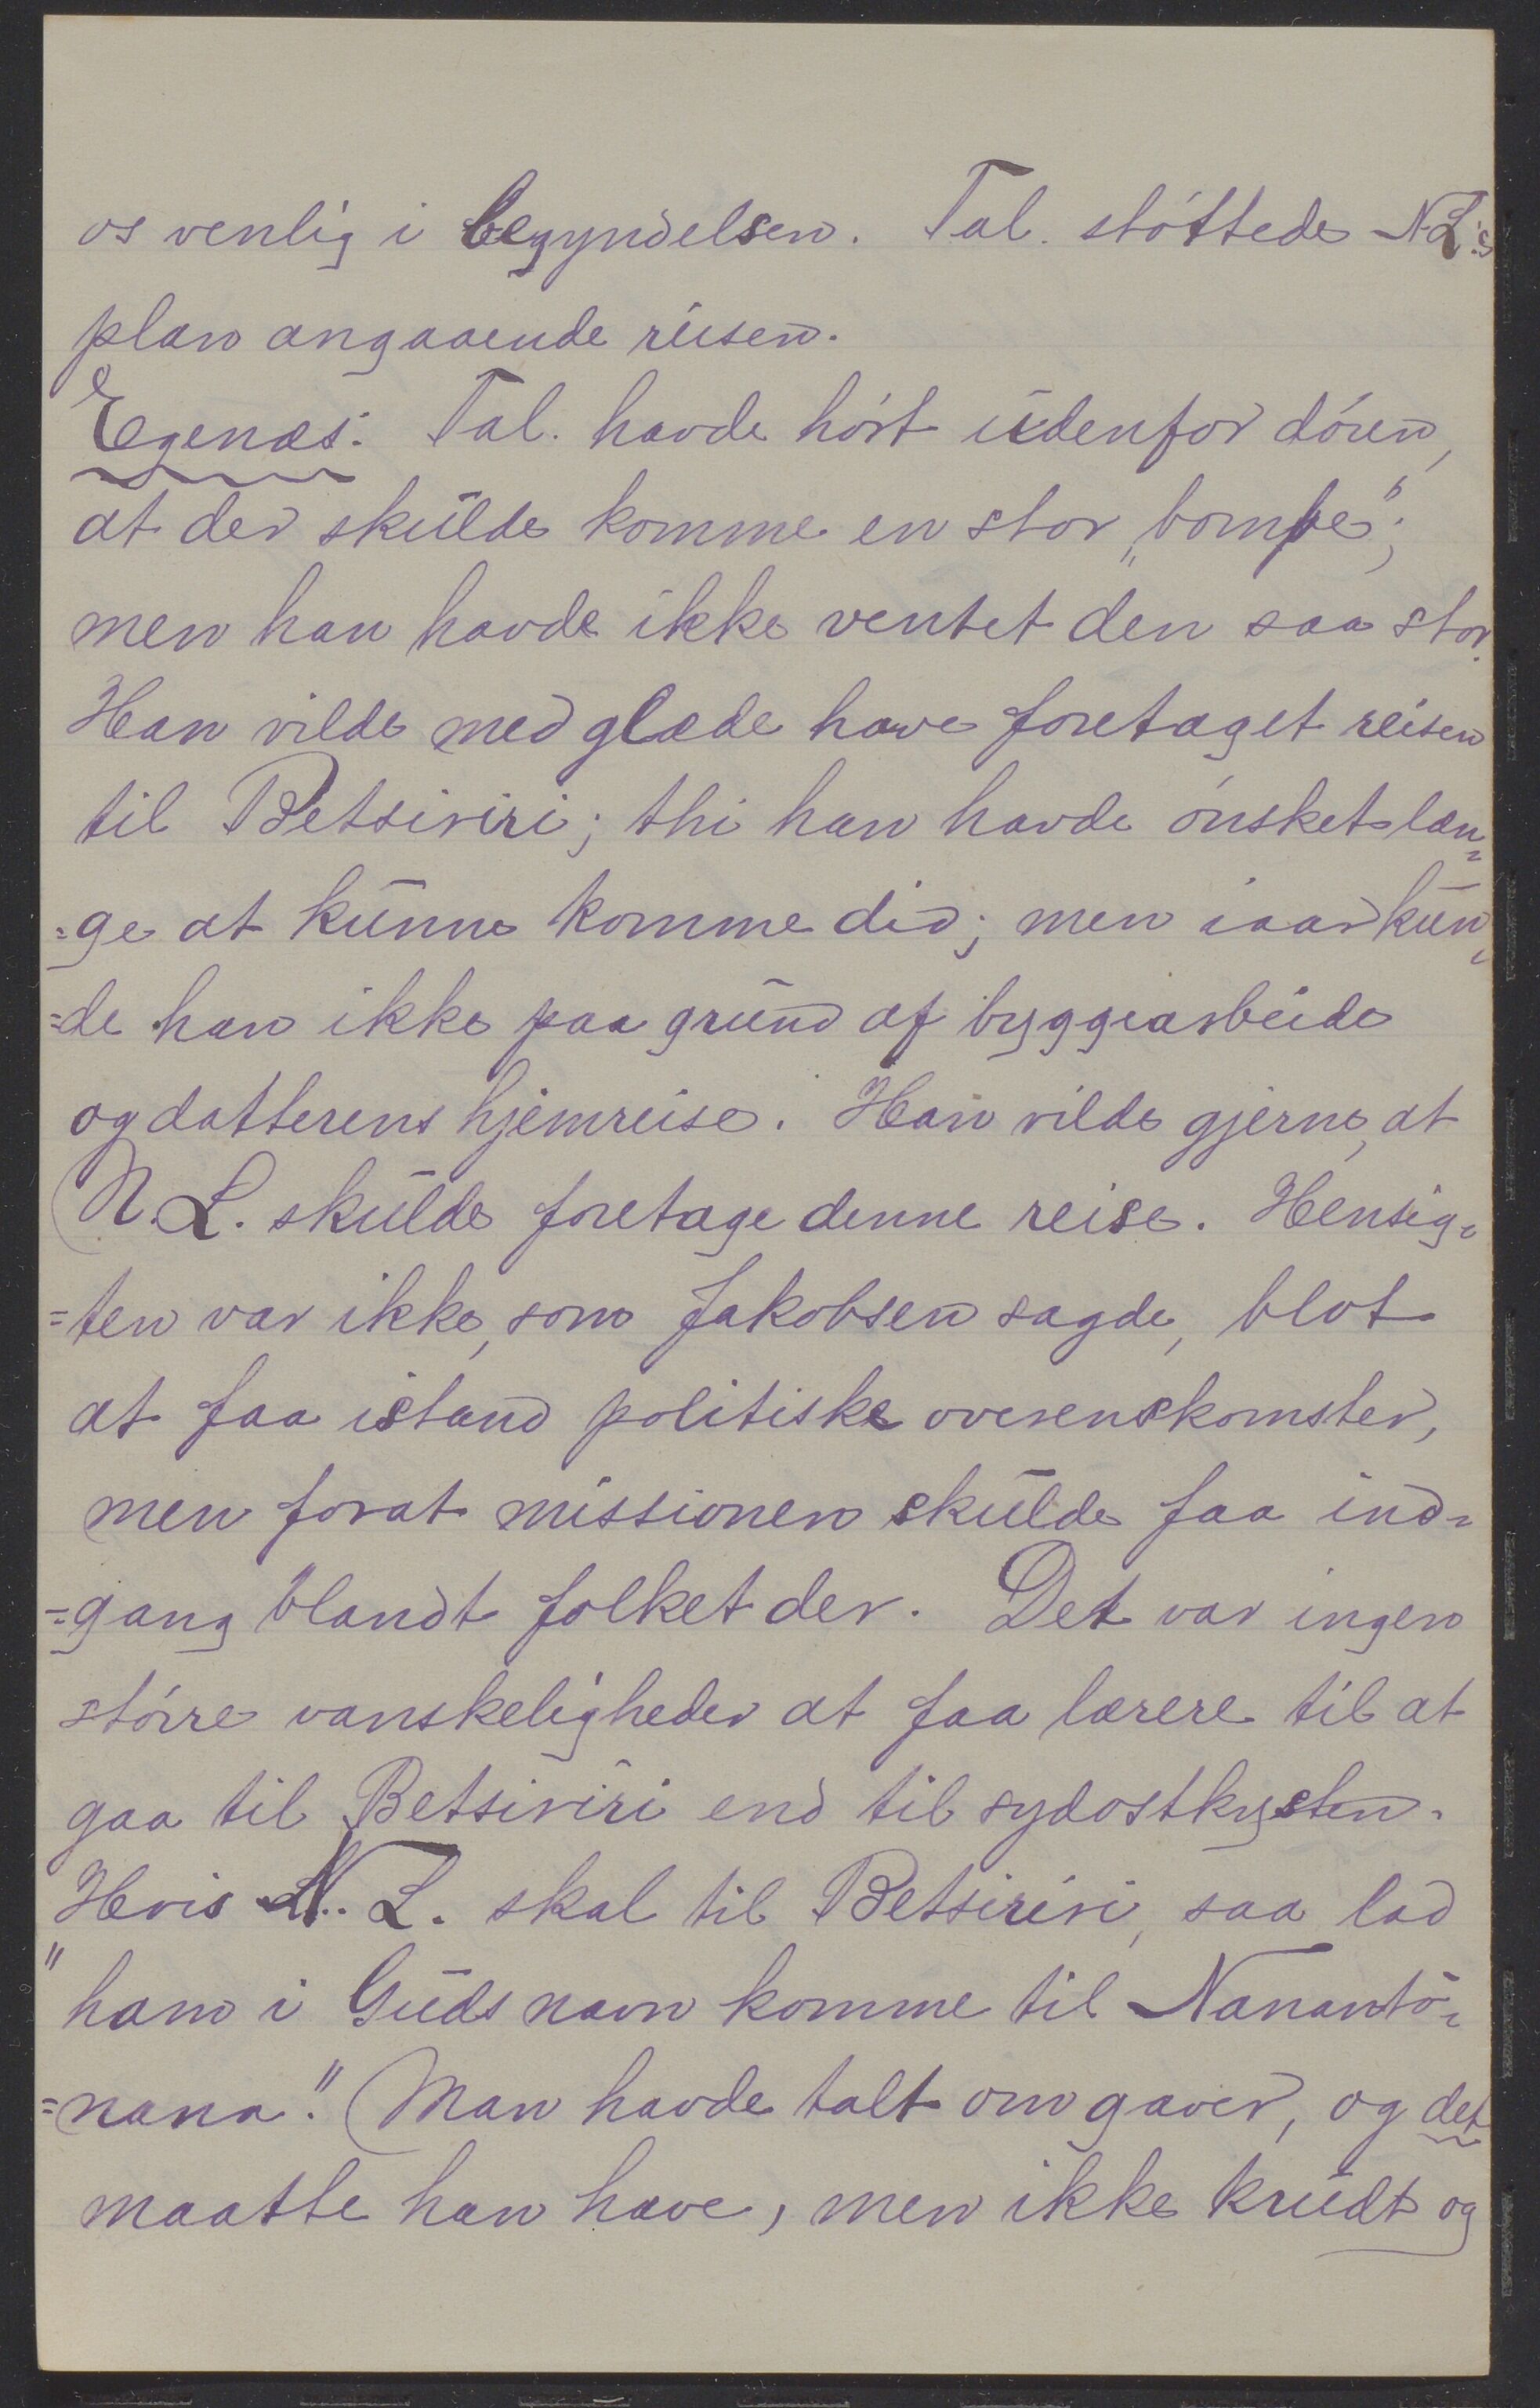 os venlig i begyndelsen. Tal. støttede N.L.:s
plan angaaende reisen.
Egenæs: Tal. havde hørt udenfor døren,
at der skulde komme en stor „bombe”;
men han havde ikke ventet den saa stor.
Han vilde med glæde have foretaget reisen
til Betsiriri; thi han havde ønsket læn=
=ge at kunne komme did; men iaar kun=
=de han ikke paa grund af byggearbeide
og datterens hjemreise. Han vilde gjerne, at
N.L. skulde foretage denne reise. Hensig=
=ten var ikke, som Jakobsen sagde, blot
at faa istand politiske overenskomster,
men forat missionen skulde faa ind=
=gang blandt folket der. Det var ingen
større vanskeligheder at faa lærere til at
gaa til Betsiriri end til sydostkysten.
Hvis N.L. skal til Betsiriri, saa lad
"ham i Guds navn komme til Nanantø=
=nana." Man havde talt om gaver, og det
maatte han have, men ikke krudt og